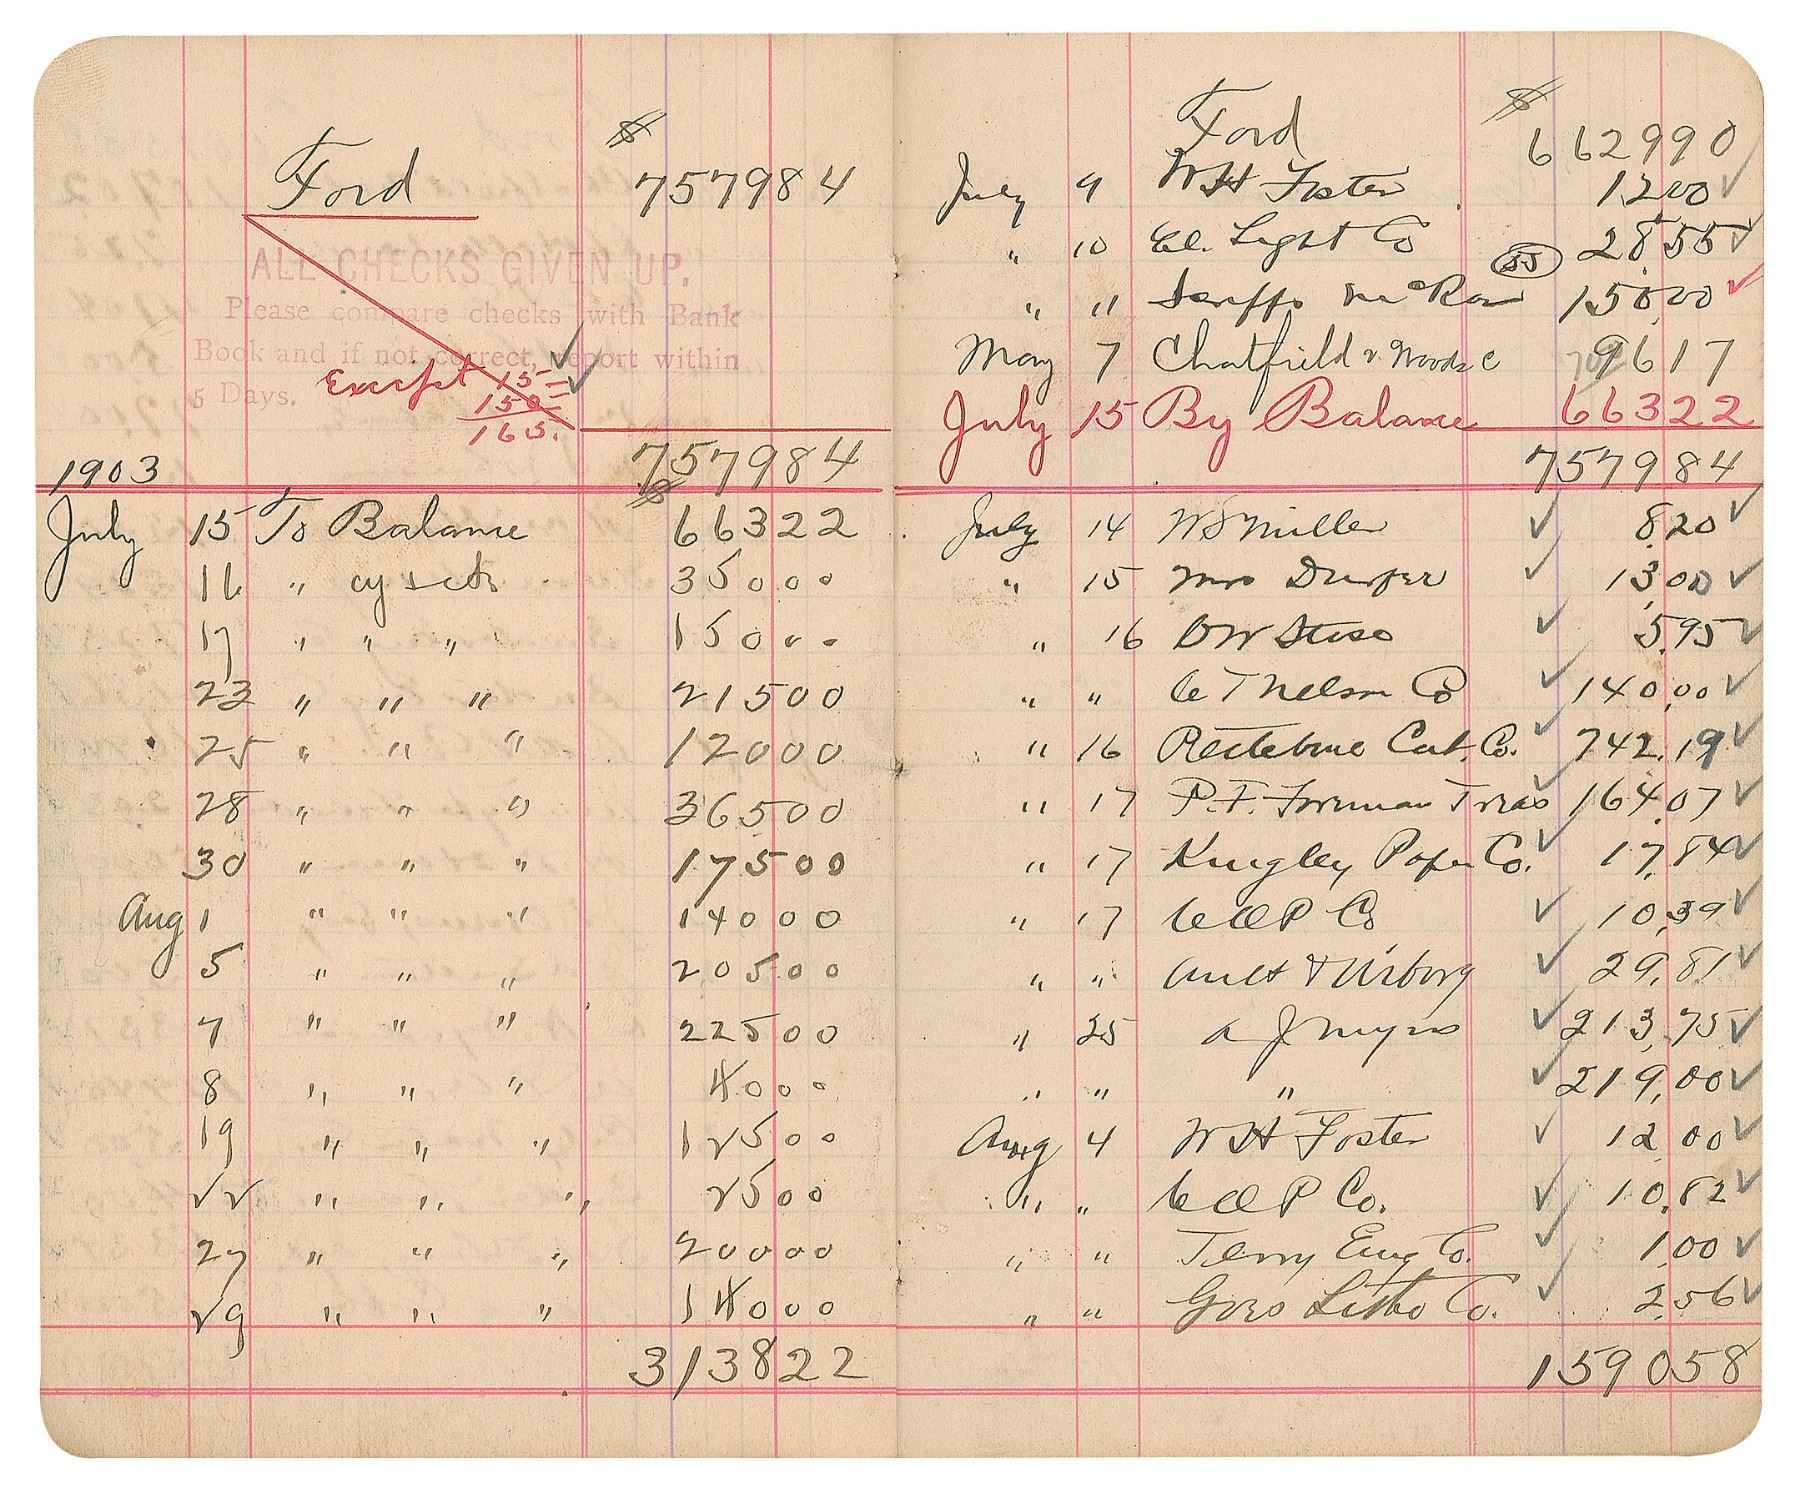 Ford $ 757984
ALL CHECKS GIVEN UP.
Please compare checks with Bank
Book and if not correct, report within
5 Days.
Except 15=
150=
165.
757984
1903
July 15 To Balance $ 66322
16 " cy & cks 35000
17 " " " 15000
23 " " " 21500
25 " " " 12000
28 " " " 36500
30 " " " 17500
Aug 1 " " " 14000
5 " " " 20500
7 " " " 22500
8 " " " 4000
19 " " " 12500
22 " " " 2500
27 " " " 20000
29 " " " 14000
313822
Ford $ 662990
July 9 WH Foster 1200
" 10 Ed. Light Co 2855
" " Mc 15000
May 7 Chatfield & Woods C 9617
July 15 By Balance 66322
757984
July 14 WS Miller 8.20
" 15 Mrs 13.00
" 16 5.95
" " CT Nelson Co 140.00
" 16 Cat. Co. 742.19
" 17 P.F. Foreman Treas 164.07
" 17 Kingley Paper Co. 17.84
" 17 P Co 10.39
" " Ault & Wiborg 29.81
" 25 A J Myers 213.75
" " " 219.00
Aug 4 WH Foster 12.00
" " P Co. 10.82
" " Terry Eng Co. 1.00
" " Litho Co. 2.56
159058